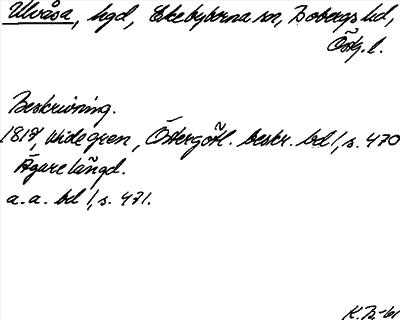 Ulvåsa, hgd, Ekebyborna sn, Bobergs hd,
Östg. l.
Beskrivning.
1817, Widegren, Östergötl. beskr. bd 1, s. 470
Ägarelängd.
a. a. bd 1, s. 471.
K. B-61